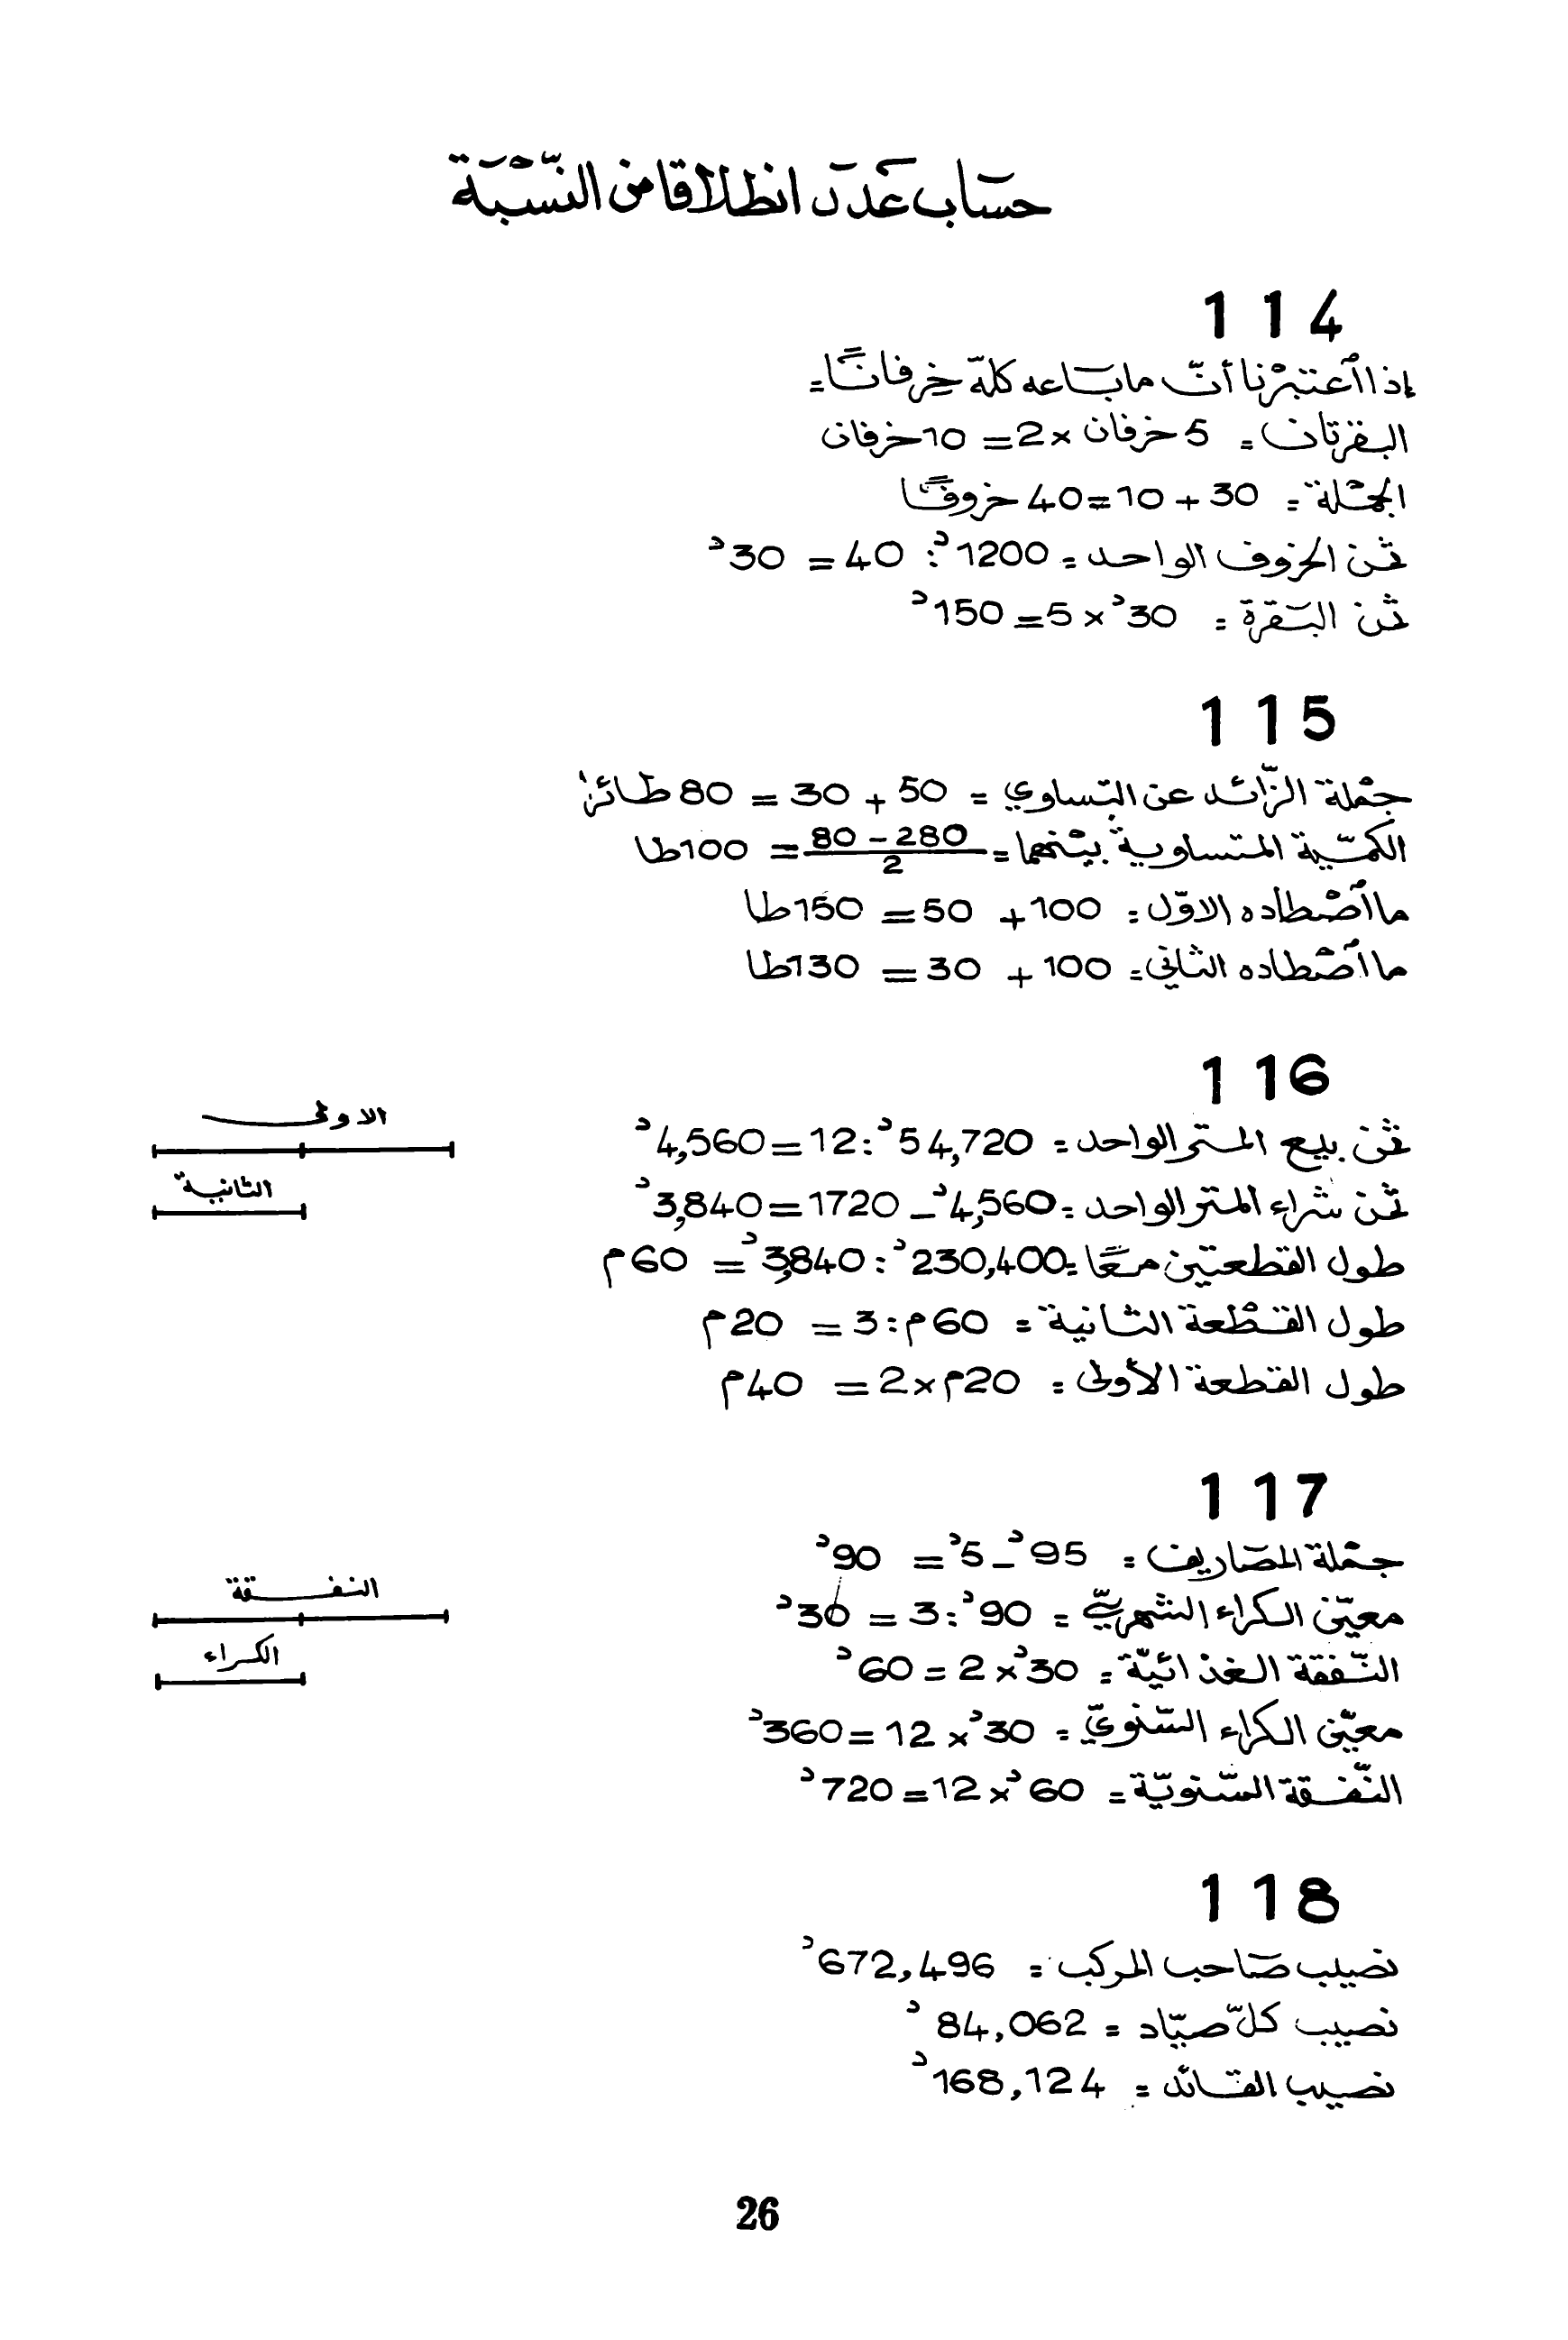 حساب عدد انطلاقا من النّسْبة
114
إذا اعتبرْنا أنّ ما باعه كلّه خرفانًا =
البقرتان = 5 خرفان × 2 = 10 خرفان
الجمْلة = 30 + 10 = 40 خروفًا
ثمن الخروف الواحد = 1200د : 40 = 30د
ثمن البقرة = 30د × 5 = 150د
115
جمْلة الزّائد عن التساوي = 50 + 30 = 80 طائرًا
الكمّية المتساوية بيْنهما = (280 - 80) / 2 = 100 طا
ما اصْطاده الاوّل = 100 + 50 = 150 طا
ما اصْطاده الثاني = 100 + 30 = 130 طا
116
ثمن بيع المتر الواحد = 54,720د : 12 = 4,560د
ثمن شراء المتر الواحد = 4,560د - 1720 = 3,840د
طول القطعتين معًا = 230,400د : 3,840د = 60م
طول القطْعة الثانية = 60م : 3 = 20م
طول القطعة الأولى = 20م × 2 = 40م
الاولى
الثانية
117
جمْلة المصاريف = 95د - 5د = 90د
معيّن الكراء الشهريّ = 90د : 3 = 30د
النّفقة الغذائيّة = 30د × 2 = 60د
معيّن الكراء السّنويّ = 30د × 12 = 360د
النّفقة السّنويّة = 60د × 12 = 720د
النفقة
الكراء
118
نصيب صاحب المركب = 672,496د
نصيب كلّ صيّاد = 84,062د
نصيب القائد = 168,124د
26